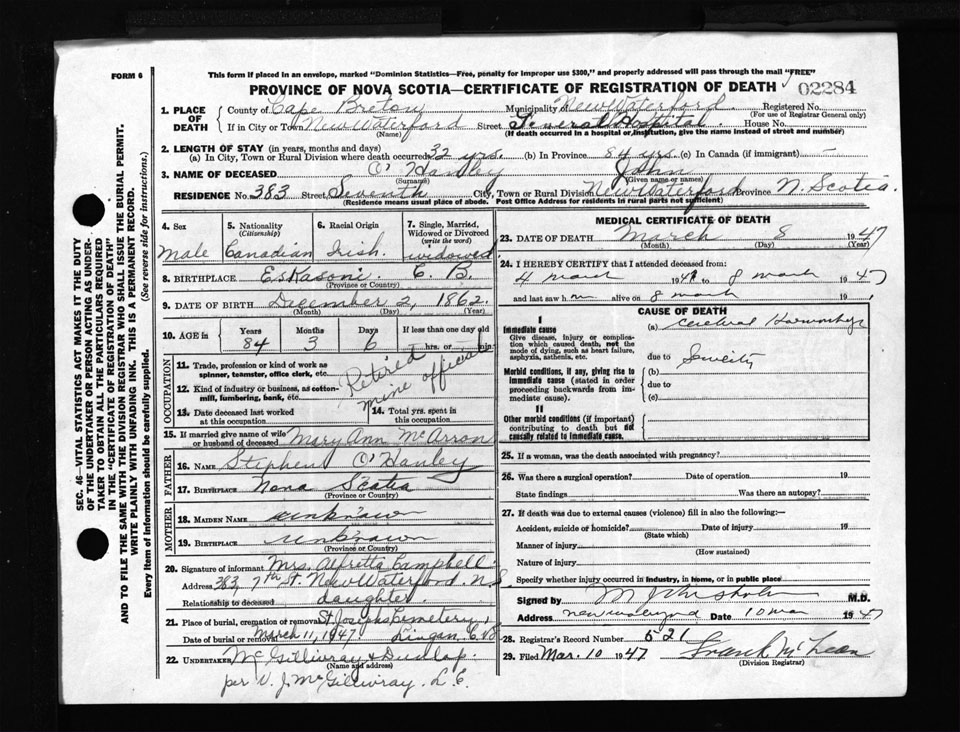 FORM 6
This form if placed in an envelope, marked "Dominion Statistics—Free, penalty for improper use $300," and properly addressed will pass through the mail "FREE"
PROVINCE OF NOVA SCOTIA—CERTIFICATE OF REGISTRATION OF DEATH
02284
1. PLACE OF DEATH
County of Cape Breton Municipality of New Waterford Registered No.
(For use of Registrar General only)
If in City or Town New Waterford Street General Hospital House No.
(Name) (If death occurred in a hospital or institution, give the name instead of street and number)
2. LENGTH OF STAY (in years, months and days)
(a) In City, Town or Rural Division where death occurred 32 yrs. (b) In Province 84 yrs (c) In Canada (if immigrant) —
3. NAME OF DECEASED O'Hanley John
(Surname) (Given name or names)
RESIDENCE No. 383 Street Seventh City, Town or Rural Division New Waterford Province N. Scotia.
(Residence means usual place of abode. Post Office Address for residents in rural parts not sufficient)
4. Sex Male
5. Nationality (Citizenship) Canadian
6. Racial Origin Irish.
7. Single, Married, Widowed or Divorced (write the word) widowed
8. BIRTHPLACE Eskasoni. C. B.
(Province or Country)
9. DATE OF BIRTH December 2, 1862.
(Month) (Day) (Year)
10. AGE in Years 84 Months 3 Days 6 If less than one day old hrs. or min.
OCCUPATION
11. Trade, profession or kind of work as spinner, teamster, office clerk, etc.
Retired mine official
12. Kind of industry or business, as cotton-mill, lumbering, bank, etc.
13. Date deceased last worked at this occupation
14. Total yrs. spent in this occupation
15. If married give name of wife or husband of deceased Mary Ann McArron
FATHER
16. NAME Stephen O'Hanley
17. BIRTHPLACE Nova Scotia
(Province or Country)
MOTHER
18. MAIDEN NAME unknown
19. BIRTHPLACE Unknown
(Province or Country)
20. Signature of informant Mrs. Alfretta Campbell.
Address 383, 7th St. New Waterford. N.S
Relationship to deceased daughter.
21. Place of burial, cremation or removal St Josephs Cemetery,
Date of burial or removal March 11, 1947 Lingan. C.B
22. UNDERTAKER McGillivray & Dunlap.
(Name and address)
per J. McGillivray. L.E.
MEDICAL CERTIFICATE OF DEATH
23. DATE OF DEATH March 8 1947
(Month) (Day) (Year)
24. I HEREBY CERTIFY that I attended deceased from:
4 march 1947 to 8 march 1947
and last saw him alive on 8 march 19
CAUSE OF DEATH
I
Immediate cause
Give disease, injury or complication which caused death, not the mode of dying, such as heart failure, asphyxia, asthenia, etc.
(a) Cerebral Haemorrhage
due to Senility
Morbid conditions, if any, giving rise to immediate cause (stated in order proceeding backwards from immediate cause).
(b)
due to
(c)
II
Other morbid conditions (if important) contributing to death but not causally related to immediate cause.
25. If a woman, was the death associated with pregnancy?
26. Was there a surgical operation? Date of operation 19
State findings Was there an autopsy?
27. If death was due to external causes (violence) fill in also the following:—
Accident, suicide or homicide? Date of injury 19
(State which)
Manner of injury
(How sustained)
Nature of injury
Specify whether injury occurred in industry, in home, or in public place
Signed by M.D.
Address Date 10 mar 1947
28. Registrar's Record Number 521
29. Filed Mar. 10 1947 Frank McLean
(Division Registrar)
SEC. 46—VITAL STATISTICS ACT MAKES IT THE DUTY
OF THE UNDERTAKER OR PERSON ACTING AS UNDER-
TAKER TO OBTAIN ALL THE PARTICULARS REQUIRED
IN THE "CERTIFICATE OF REGISTRATION OF DEATH"
AND TO FILE THE SAME WITH THE DIVISION REGISTRAR WHO SHALL ISSUE THE BURIAL PERMIT.
WRITE PLAINLY WITH UNFADING INK. THIS IS A PERMANENT RECORD.
Every item of information should be carefully supplied. (See reverse side for instructions.)